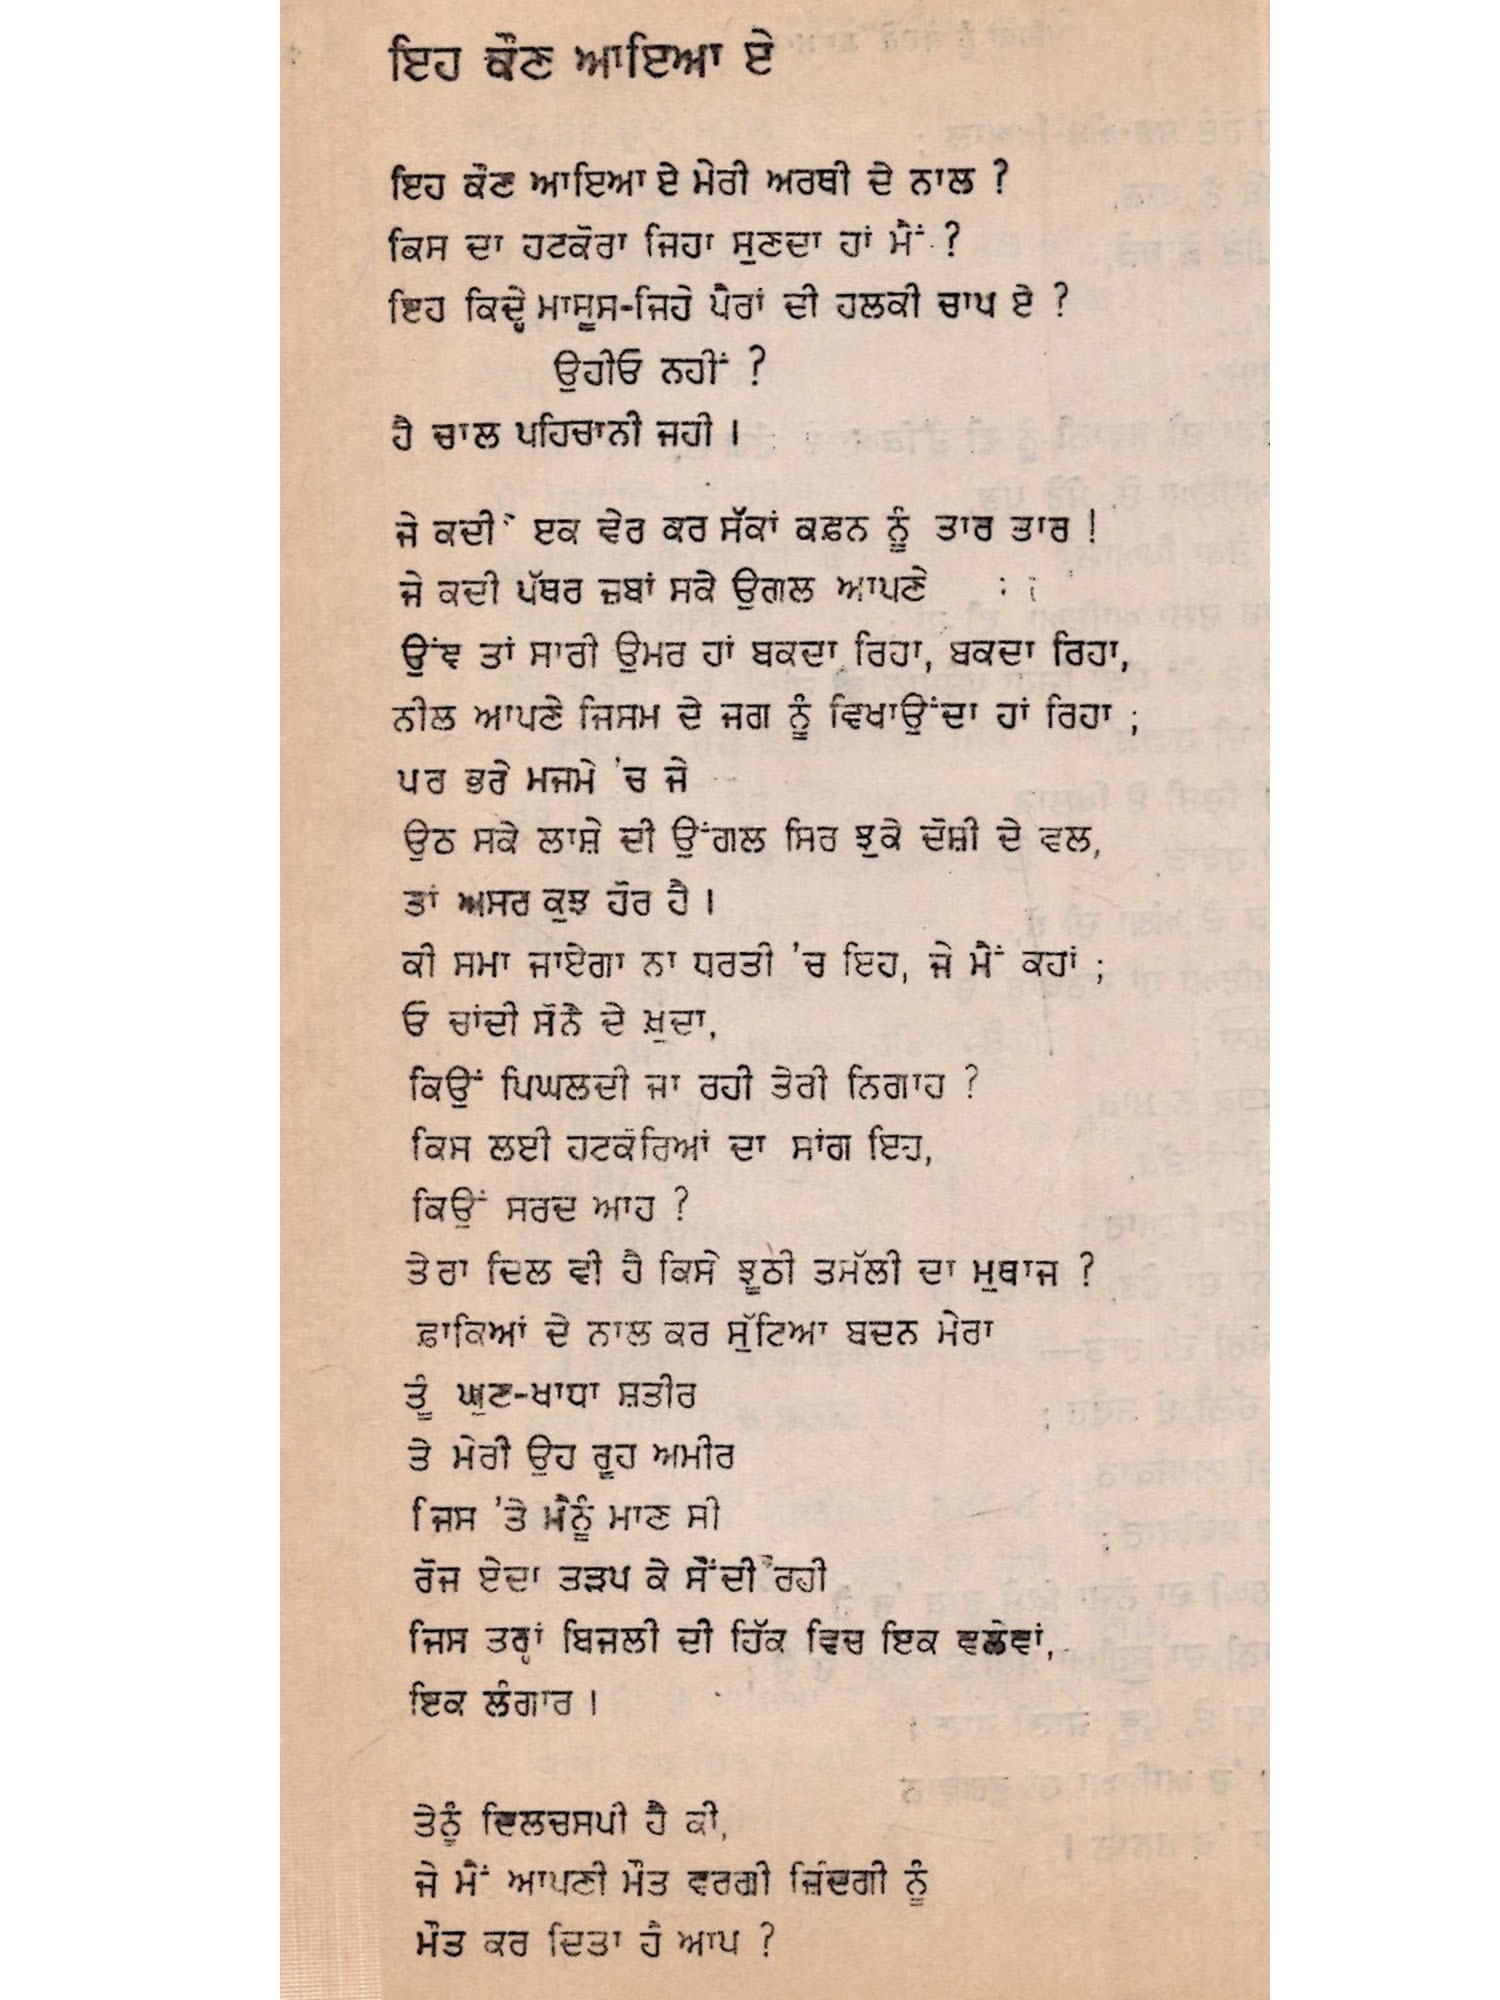 ਇਹ ਕੌਣ ਆਇਆ ਏ
ਇਹ ਕੌਣ ਆਇਆ ਏ ਮੇਰੀ ਅਰਥੀ ਦੇ ਨਾਲ ?
ਕਿਸ ਦਾ ਹਟਕੋਰਾ ਜਿਹਾ ਸੁਣਦਾ ਹਾਂ ਮੈਂ ?
ਇਹ ਕਿਦ੍ਹੇ ਮਾਸੂਸ-ਜਿਹੇ ਪੈਰਾਂ ਦੀ ਹਲਕੀ ਚਾਪ ਏ ?
ਉਹੀਓ ਨਹੀਂ ?
ਹੈ ਚਾਲ ਪਹਿਚਾਨੀ ਜਹੀ ।
ਜੇ ਕਦੀਂ ਏਕ ਵੇਰ ਕਰ ਸੱਕਾਂ ਕਫ਼ਨ ਨੂੰ ਤਾਰ ਤਾਰ !
ਜੇ ਕਦੀ ਪੱਥਰ ਜ਼ਬਾਂ ਸਕੇ ਉਗਲ ਆਪਣੇ
ਉਂਞ ਤਾਂ ਸਾਰੀ ਉਮਰ ਹਾਂ ਬਕਦਾ ਰਿਹਾ, ਬਕਦਾ ਰਿਹਾ,
ਨੀਲ ਆਪਣੇ ਜਿਸਮ ਦੇ ਜਗ ਨੂੰ ਵਿਖਾਉਂਦਾ ਹਾਂ ਰਿਹਾ ;
ਪਰ ਭਰੇ ਮਜਮੇ 'ਚ ਜੇ
ਉਠ ਸਕੇ ਲਾਸ਼ੇ ਦੀ ਉਂਗਲ ਸਿਰ ਝੁਕੇ ਦੋਸ਼ੀ ਦੇ ਵਲ,
ਤਾਂ ਅਸਰ ਕੁਝ ਹੋਰ ਹੈ ।
ਕੀ ਸਮਾ ਜਾਏਗਾ ਨਾ ਧਰਤੀ 'ਚ ਇਹ, ਜੇ ਮੈਂ ਕਹਾਂ ;
ਓ ਚਾਂਦੀ ਸੋਨੈ ਦੇ ਖ਼ੁਦਾ,
ਕਿਉਂ ਪਿਘਲਦੀ ਜਾ ਰਹੀ ਤੇਰੀ ਨਿਗਾਹ ?
ਕਿਸ ਲਈ ਹਟਕੋਰਿਆਂ ਦਾ ਸਾਂਗ ਇਹ,
ਕਿਉਂ ਸਰਦ ਆਹ ?
ਤੇਰਾ ਦਿਲ ਵੀ ਹੈ ਕਿਸੇ ਝੂਠੀ ਤਸੱਲੀ ਦਾ ਮੁਥਾਜ ?
ਫ਼ਾਕਿਆਂ ਦੇ ਨਾਲ ਕਰ ਸੁੱਟਿਆ ਬਦਨ ਮੇਰਾ
ਤੂੰ ਘੁਣ-ਖਾਧਾ ਸ਼ਤੀਰ
ਤੇ ਮੇਰੀ ਉਹ ਰੂਹ ਅਮੀਰ
ਜਿਸ 'ਤੇ ਮੈਨੂੰ ਮਾਣ ਸੀ
ਰੋਜ ਏਦਾ ਤੜਪ ਕੇ ਸੌਂਦੀ ਰਹੀ
ਜਿਸ ਤਰ੍ਹਾਂ ਬਿਜਲੀ ਦੀ ਹਿੱਕ ਵਿਚ ਇਕ ਵਲੇਵਾਂ,
ਇਕ ਲੰਗਾਰ ।
ਤੇਨੂੰ ਦਿਲਚਸਪੀ ਹੈ ਕੀ,
ਜੇ ਮੈਂ ਆਪਣੀ ਮੌਤ ਵਰਗੀ ਜ਼ਿੰਦਗੀ ਨੂੰ
ਮੌਤ ਕਰ ਦਿਤਾ ਹੈ ਆਪ ?